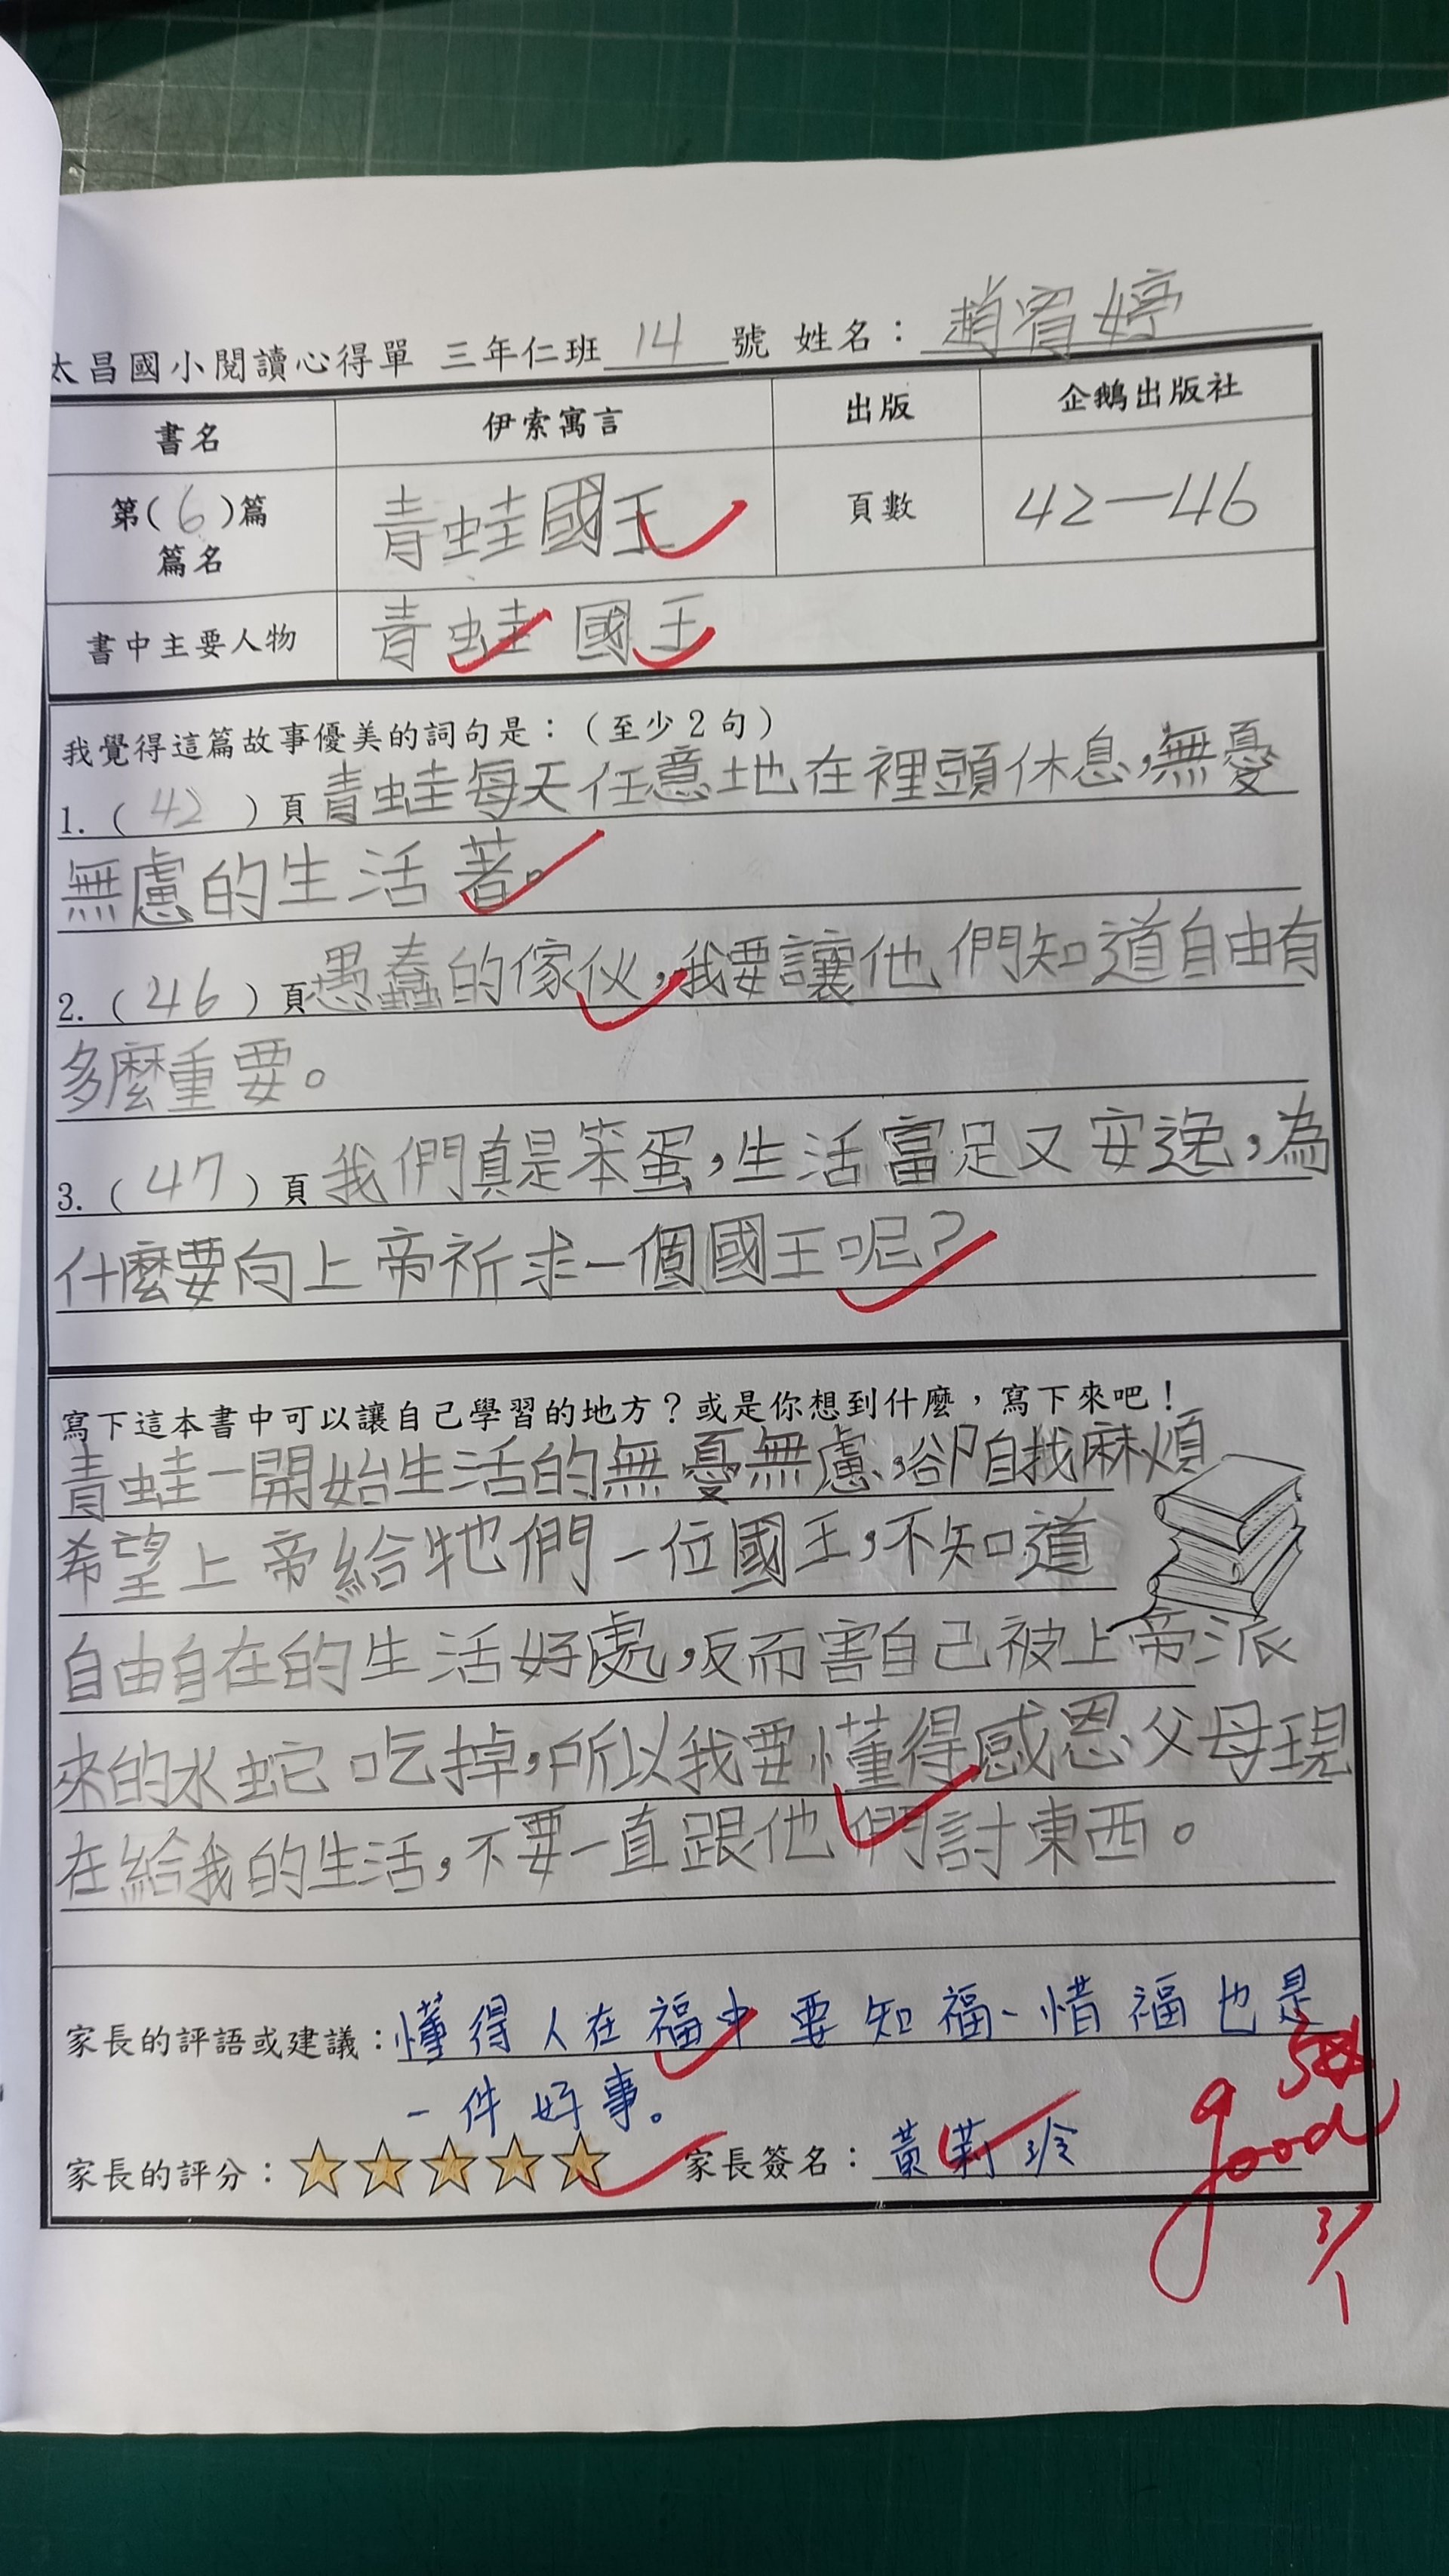 太昌國小閱讀心得單 三年仁班 14 號 姓名：趙宥婷
書名 伊索寓言 出版 企鵝出版社
第(6)篇 篇名 青蛙國王 頁數 42—46
書中主要人物 青蛙 國王
我覺得這篇故事優美的詞句是：（至少2句）
1.（ 42 ）頁青蛙每天任意地在裡頭休息，無憂
無慮的生活著。
2.（ 46 ）頁愚蠢的傢伙，我要讓他們知道自由有
多麼重要。
3.（ 47 ）頁我們真是笨蛋，生活富足又安逸，為
什麼要向上帝祈求一個國王呢？
寫下這本書中可以讓自己學習的地方？或是你想到什麼，寫下來吧！
青蛙一開始生活的無憂無慮，卻自找麻煩
希望上帝給牠們一位國王，不知道
自由自在的生活好處，反而害自己被上帝派
來的水蛇吃掉，所以我要懂得感恩父母現
在給我的生活，不要一直跟他們討東西。
家長的評語或建議：懂得人在福中要知福、惜福也是
一件好事。
5☆
good
家長的評分：☆☆☆☆☆ 家長簽名：黃莉玲
3/1